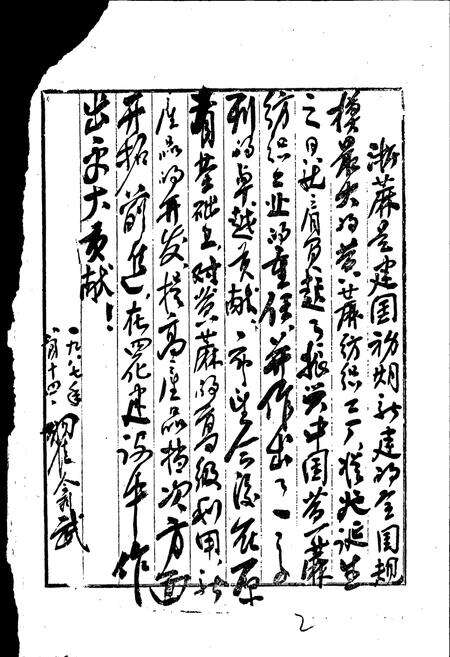 浙麻是建国初期新建的全国规
模最大的黄麻纺织工厂，从她诞生
之日就肩负起了振兴中国黄麻
纺织工业的重任，并作出了一系
列的卓越贡献。希望今后在原
有基础上，对黄麻的高级利用、新
产品的开发、提高产品档次方面
开拓前进，在四化建设中作
出更大贡献！
一九八七年
八月十四
2